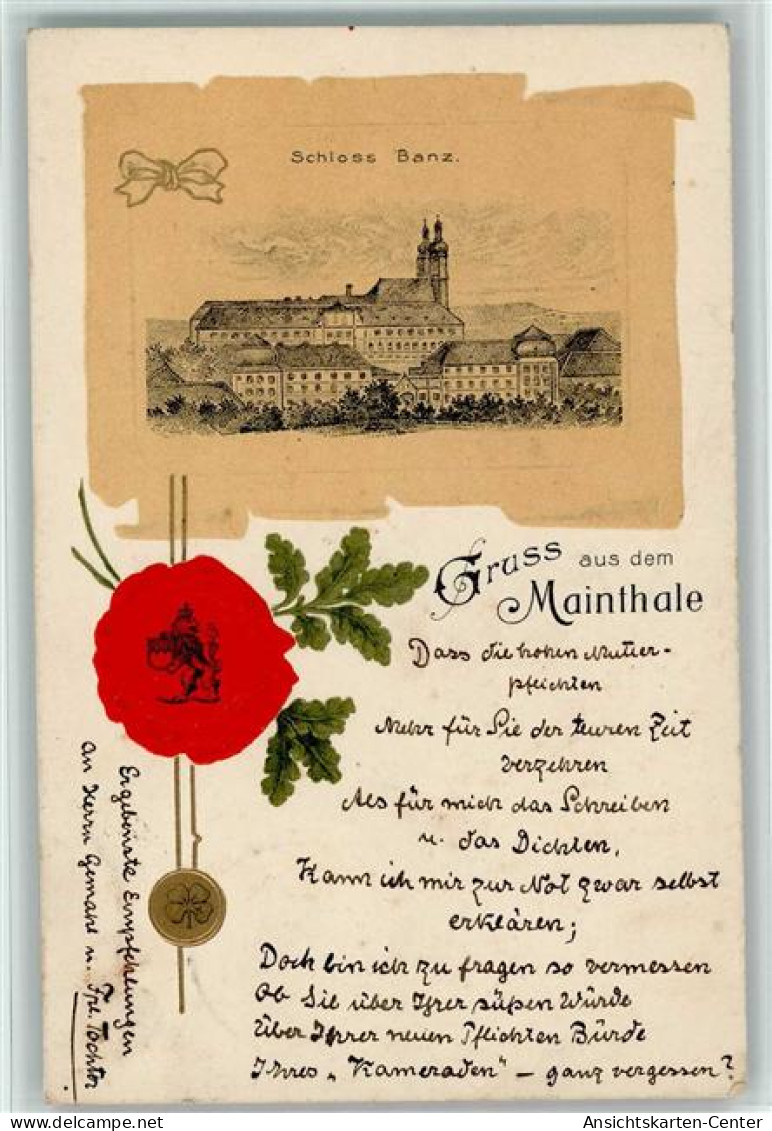 Schloss Banz.
Gruss aus dem
Mainthale
Dass die hohen Mutter-
pflichten
Mehr für Sie der teuren Zeit
verzehren
Als für mich das Schreiben
u. das Dichten,
Kann ich mir zur Not zwar selbst
erklären;
Doch bin ich zu fragen so vermessen
Ob Sie über Ihrer süßen Würde
Über Ihrer neuen Pflichten Bürde
Ihres „Kameraden" – ganz vergessen?
Ergebenste Empfehlungen
an Herrn Gemahl u. Frl. Tochter
Ansichtskarten-Center